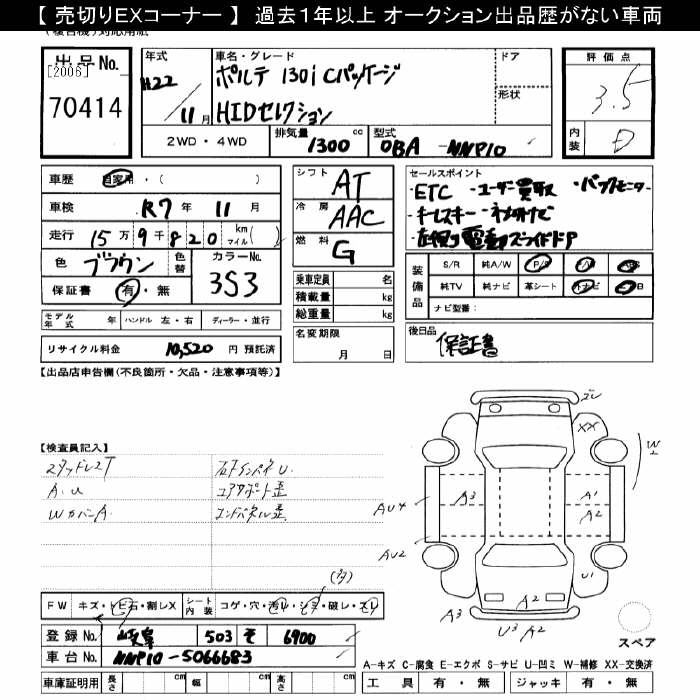 【 売切りEXコーナー 】 過去1年以上 オークション出品歴がない車両
出品No.
[2006]
70414
年式
H22
11月
車名・グレード
ポルテ 130i Cパッケージ
HIDセレクション
ドア
形状
評価点
3.5
内装
D
2WD・4WD
排気量
1300 cc
型式
DBA-NNP10
車歴
自家用・( )
車検
R7年 11月
走行
15万9千820
km
マイル( )
色
ブラウン
色替
カラーNo.
3S3
保証書
有・無
モデル年式 年
ハンドル 左・右
ディーラー・並行
リサイクル料金 10,520 円 預託済
シフト
AT
冷房
AAC
燃料
G
乗車定員 名
積載量 kg
総重量 kg
名変期限
月 日
セールスポイント
・ETC ・ユーザー買取 ・バックモニター
・キーレスキー
・左側電動スライドドア
装備品
S/R 純A/W P/S
純TV 純ナビ 革シート 外ナビ
ナビ型番：
後日品
保証書
【出品店申告欄(不良箇所・欠品・注意事項等)】
【検査員記入】
スタッドレスT
A.U
WカバーA
右Fインパネ U.
コアサポート歪
エンドパネル歪
(多)
FW
キズ・トビ石・割レX
シート内装
コゲ・穴・汚レ・シミ・破レ・スレ
登録No.
岐阜 503 そ 6900
車台No.
NNP10-5066683
車庫証明用
長さ cm
幅 cm
高さ cm
XX
W
A3
A1
A2
AU4
AU2
U1
A3
A2
U3 A2
スペア
A-キズ C-腐食 E-エクボ S-サビ U-凹ミ W-補修 XX-交換済
工具 有・無
ジャッキ 有・無